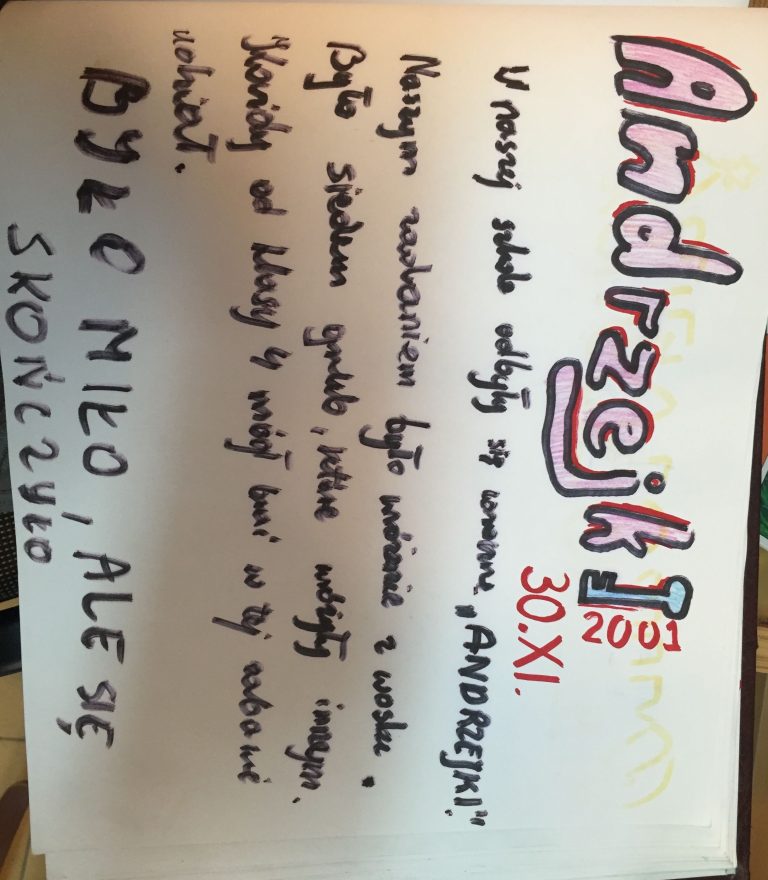 Andrzejki
2001
30.XI.
W naszej szkole odbyły się „ANDRZEJKI".
Naszym zadaniem było wróżenie z wosku.
Było siedem które wróżyły innym.
Każdy od klasy 4 mógł brać w tej zabawie
udział.
BYŁO MIŁO, ALE SIĘ
SKOŃCZYŁO